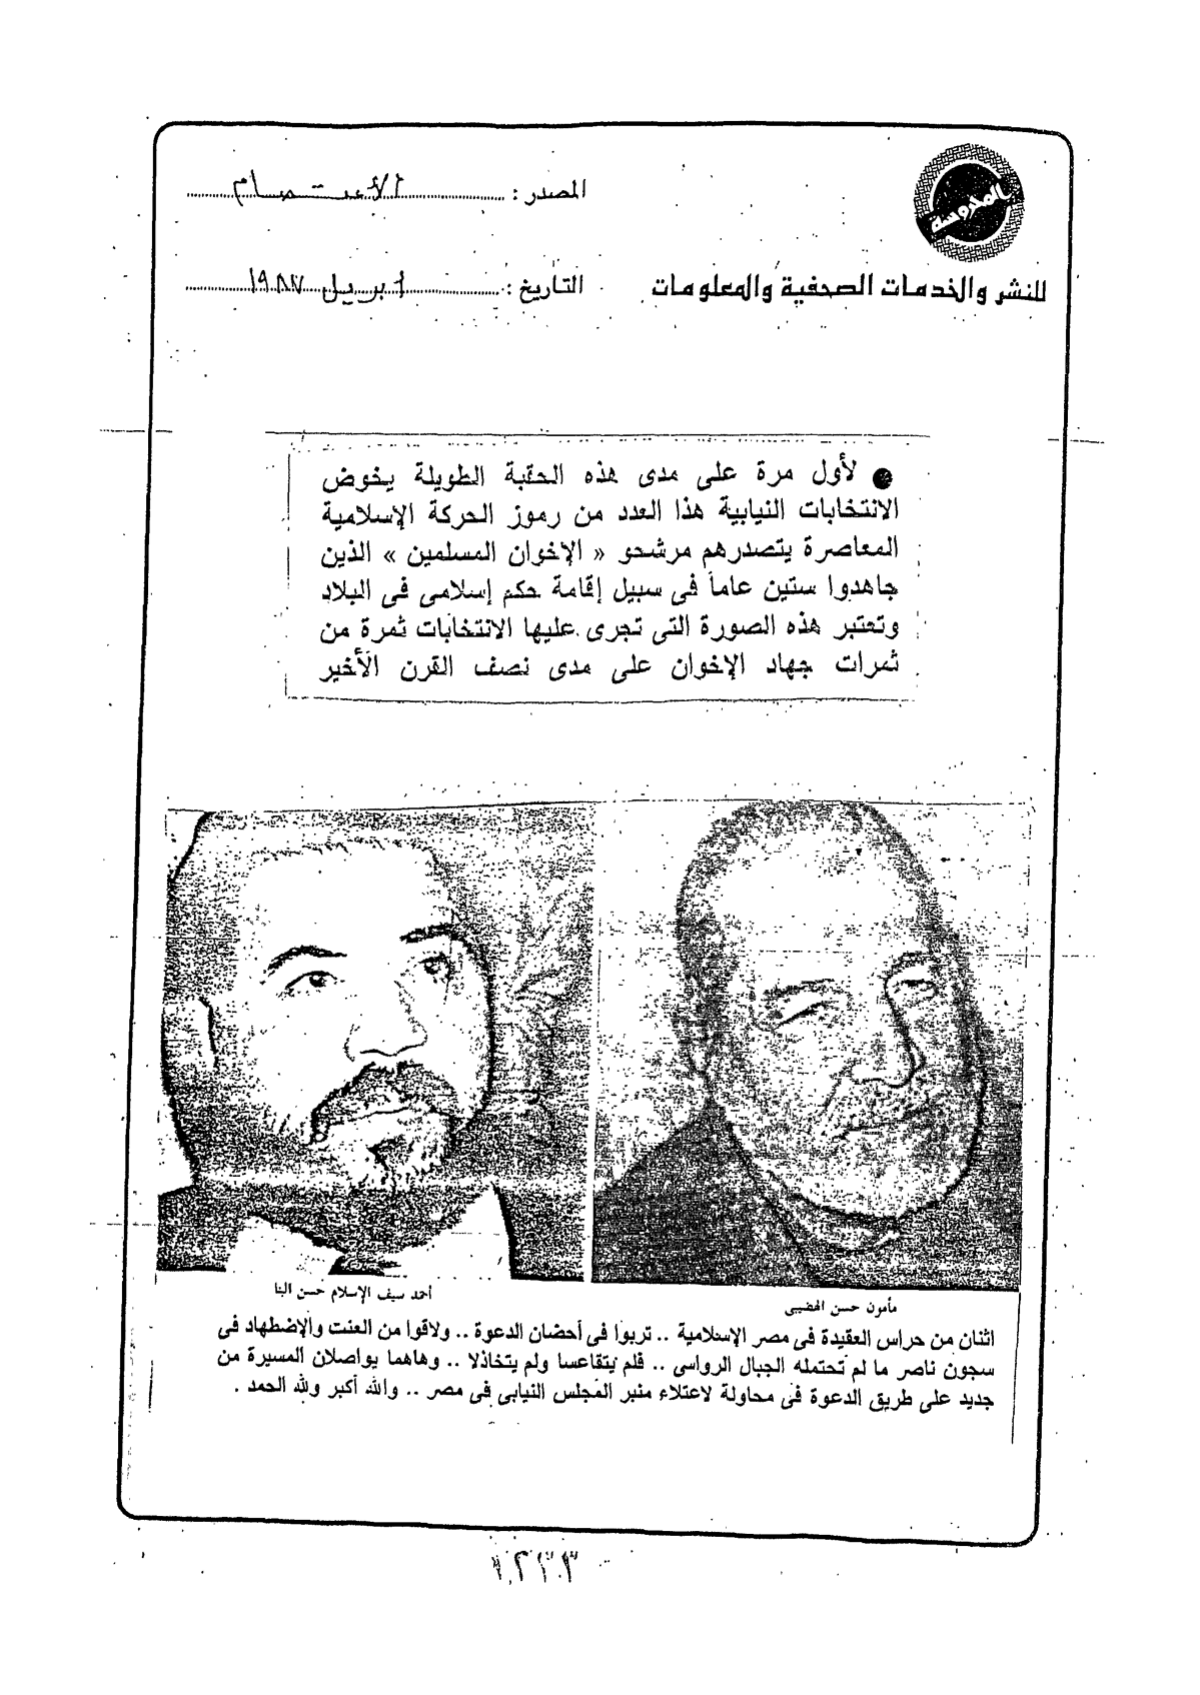 المحروسة
للنشر والخدمات الصحفية والمعلومات
المصدر : الاعتصام
التاريخ : ابريل ١٩٨٧
● لأول مرة على مدى هذه الحقبة الطويلة يخوض
الانتخابات النيابية هذا العدد من رموز الحركة الإسلامية
المعاصرة يتصدرهم مرشحو « الإخوان المسلمين » الذين
جاهدوا ستين عاماً فى سبيل إقامة حكم إسلامى فى البلاد
وتعتبر هذه الصورة التى تجرى عليها الانتخابات ثمرة من
ثمرات جهاد الإخوان على مدى نصف القرن الأخير
مأمون حسن الهضيبى
أحمد سيف الإسلام حسن البنا
اثنان من حراس العقيدة فى مصر الإسلامية .. تربوا فى أحضان الدعوة .. ولاقوا من العنت والإضطهاد فى
سجون ناصر ما لم تحتمله الجبال الرواسى .. فلم يتقاعسا ولم يتخاذلا .. وهاهما يواصلان المسيرة من
جديد على طريق الدعوة فى محاولة لاعتلاء منبر المجلس النيابى فى مصر .. والله أكبر ولله الحمد .